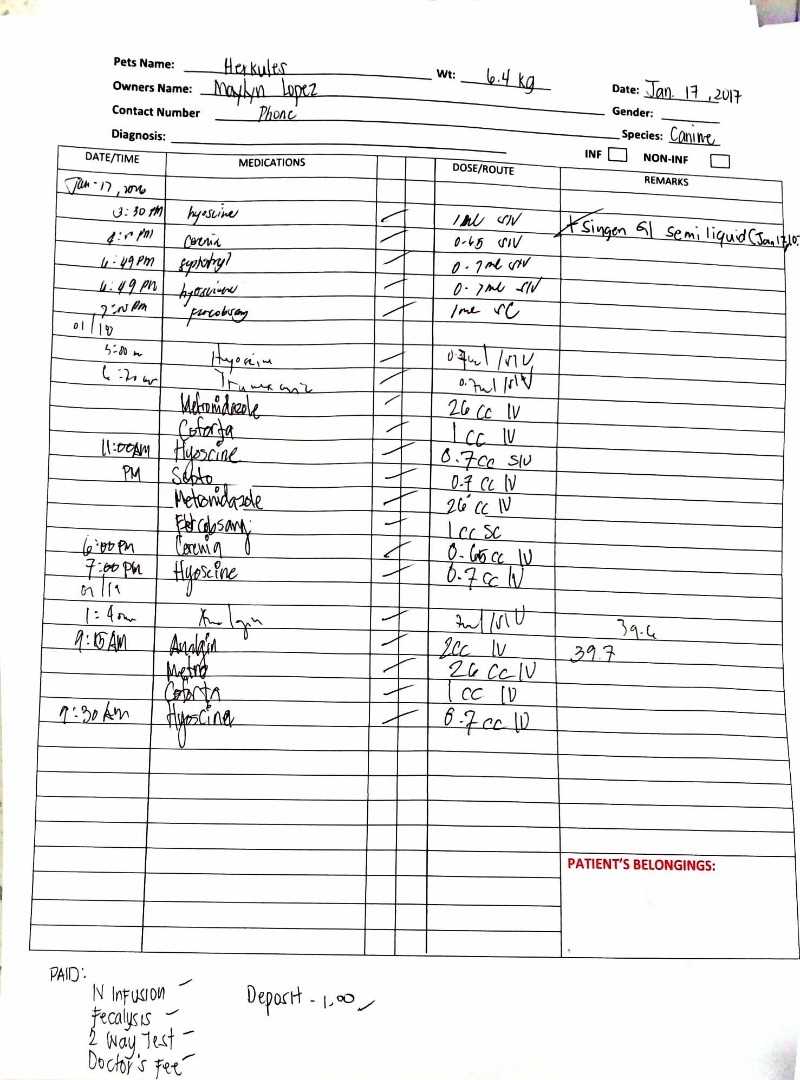 Pets Name: Herkules Wt: 6.4 kg
Owners Name: Maylyn Lopez Date: Jan. 17, 2017
Contact Number Phone Gender:
Diagnosis: Species: Canine
INF NON-INF
DATE/TIME MEDICATIONS DOSE/ROUTE REMARKS
Jan-17,
3:30 PM hyoscine 1ml SIV
PM Cerenia 0.65 SIV semi liquid (Jan 17
6:49 PM 0.7ml SIV
6:49 PM hyoscine 0.7ml SIV
PM 1ml SC
01/18
5:00 Hyoscine 0.7ml /SIV
0.7ml /SIV
Metronidazole 26 cc IV
Coforta 1 cc IV
11:00AM Hyoscine 0.7cc SIV
PM Septo 0.7 cc IV
Metronidazole 26 cc IV
1cc SC
6:00 PM Cerenia 0.65 cc IV
7:00 PM Hyoscine 0.7 cc IV
01/19
/SIV 39.6
9:15 AM Analgin 2cc IV 39.7
Metro 26 cc IV
Coforta 1 cc IV
9:30 AM Hyoscine 0.7 cc IV
PATIENT'S BELONGINGS:
PAID:
IV INFUSION Deposit - 1,00
Fecalysis
2 Way Test
Doctor's Fee